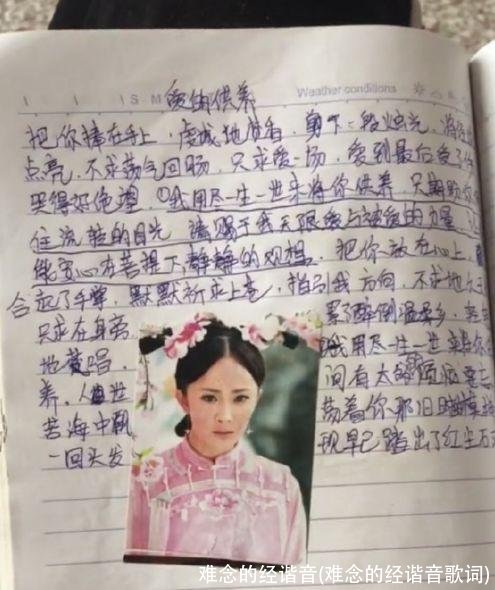 S M
Weather conditions
爱的供养
把你捧在手上,虔诚地焚香,剪下一段烛光,将
点亮,不求荡气回肠,只求爱一场,爱到最后受了
哭得好绝望。我用尽一生一世来将你供养,只期盼你
住流转的目光,请赐予我无限爱与被爱的力量,
能安心在菩提下静静的观想。把你放在心上,
合起了手掌,默默祈求上苍,指引我方向,不求地久
只求在身旁 累了醉倒温柔乡,
地黄唱, 我用尽一生一世来将你
养,人世 间有太的烦恼要忘
苦海中飘 荡着你那旧时
一回头发 现早已踏出了红尘万
难念的经谐音(难念的经谐音歌词)